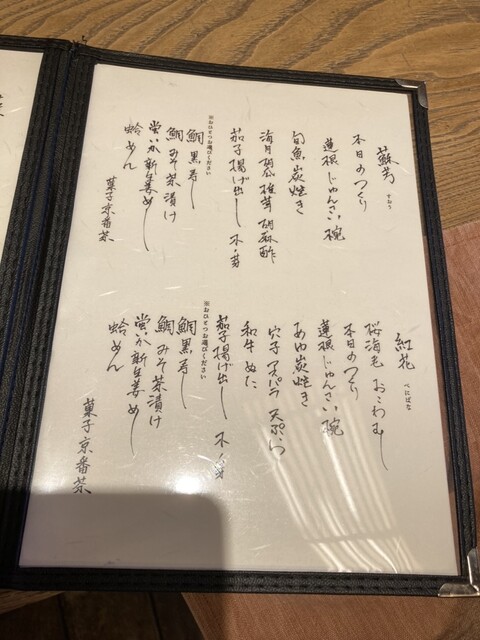 蘇芳 すおう
本日のつくり
蓮根じゅんさい椀
旬魚炭焼き
海月胡瓜椎茸胡麻酢
茄子揚げ出し 木ノ芽
※おひとつお選びください
鯛黒寿し
鯛みそ茶漬け
蛍いか新生姜めし
蛤めん
菓子京番茶
紅花 べにばな
桜海老おこわむし
本日のつくり
蓮根じゅんさい椀
あゆ炭焼き
穴子アスパラ天ぷら
和牛ぬた
茄子揚げ出し 木ノ芽
※おひとつお選びください
鯛黒寿し
鯛みそ茶漬け
蛍いか新生姜めし
蛤めん
菓子京番茶